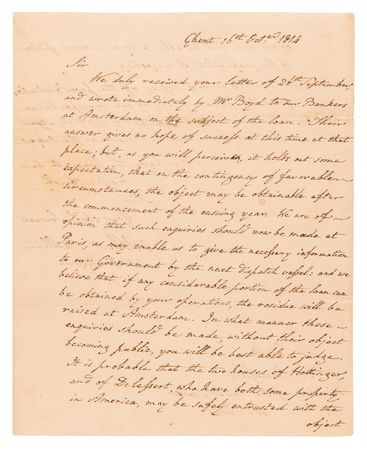 Ghent 16th Octer 1814
Sir
We duly received your letter of 26th September
and wrote immediately by Mr Boyd to our Bankers
at Amsterdam on the subject of the loan. Their
answer gives no hope of success at this time at that
place; but, as you will perceive, it holds out some
expectation, that on the contingency of favorable
circumstances, the object may be obtainable after
the commencement of the ensuing year. We are of
opinion that such enquiries should now be made at
Paris, as may enable us to give the necessary information
to our Government by the next dispatch vessel; and we
believe that if any considerable portion of the loan can
be obtained by your operations, the residue will be
raised at Amsterdam. In what manner these
enquiries should be made, without their object
becoming public, you will be best able to judge.
It is probable that the two houses of Hottinger,
and of Delessert, who have both some property
in America, may be safely entrusted with the
object